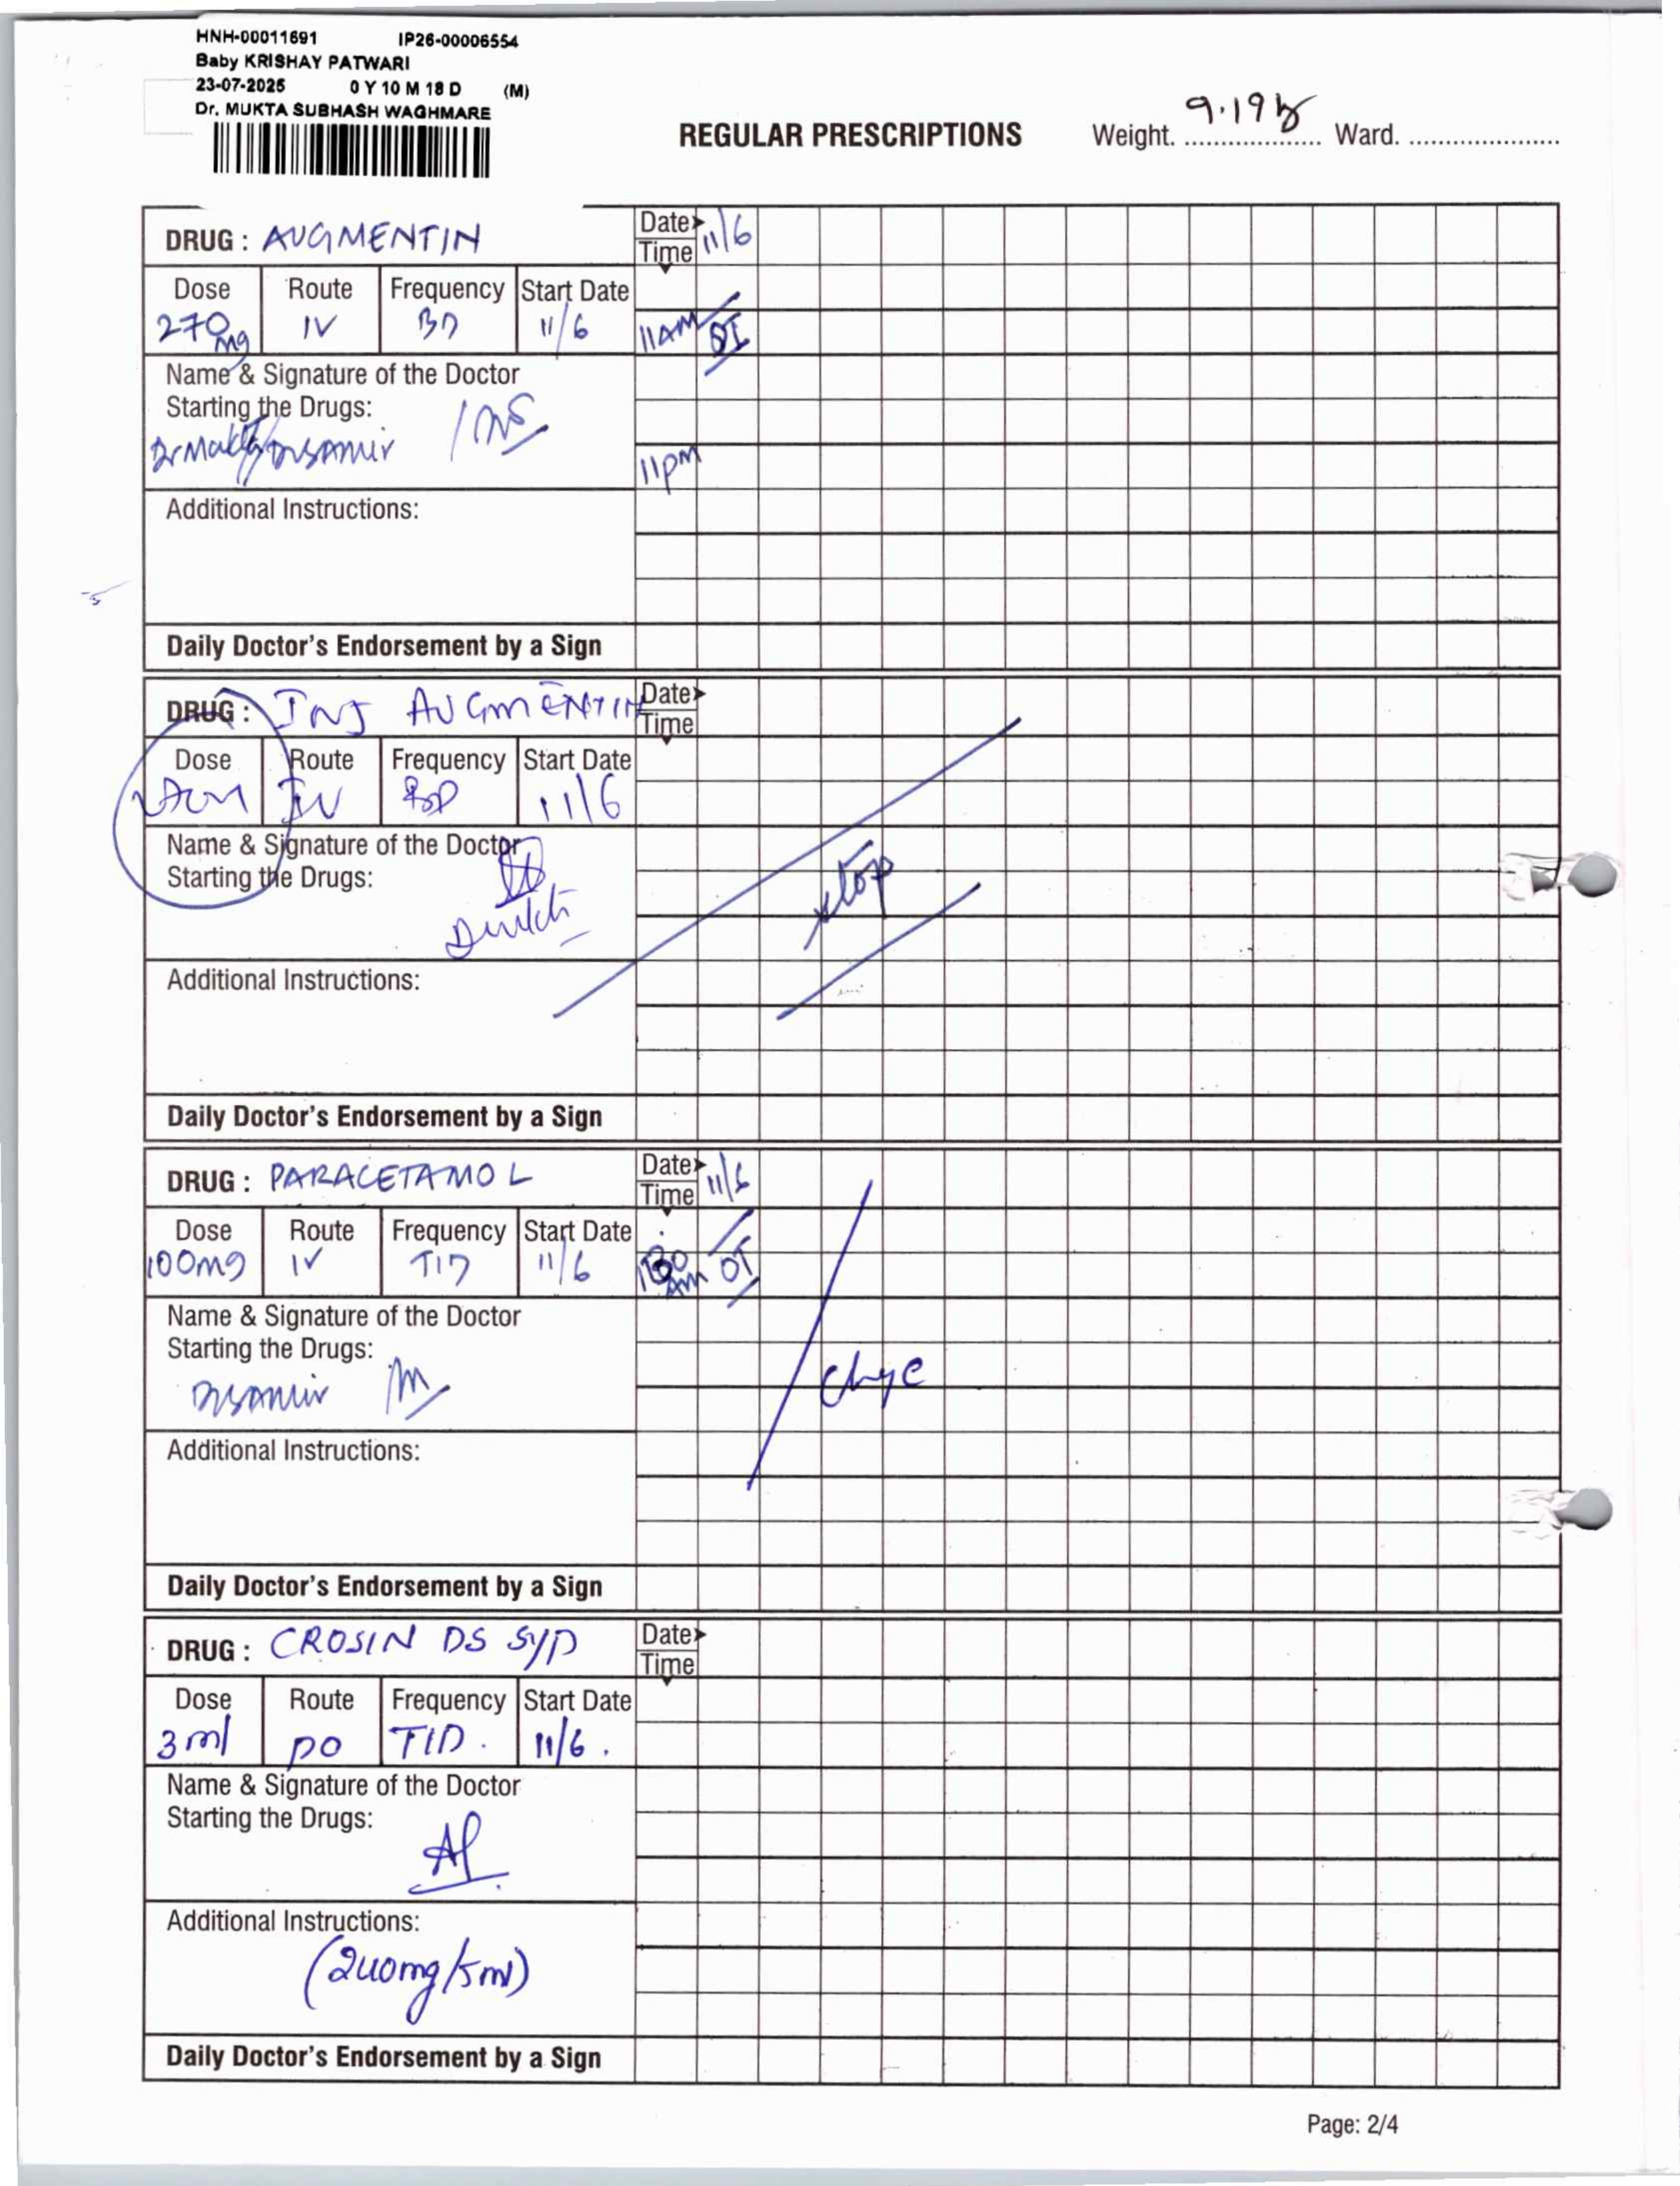 HNH-00011691 IP26-00006554
Baby KRISHAY PATWARI
23-07-2025 0 Y 10 M 18 D (M)
Dr. MUKTA SUBHASH WAGHMARE
REGULAR PRESCRIPTIONS Weight. 9.19 Ward.
DRUG : AUGMENTIN Date 11/6
Time
Dose Route Frequency Start Date
270mg IV BD 11/6 11AM OT
Name & Signature of the Doctor
Starting the Drugs:
11pm
Additional Instructions:
Daily Doctor's Endorsement by a Sign
DRUG : INJ AUGMENTIN Date
Time
Dose Route Frequency Start Date
IV BD 11/6
Name & Signature of the Doctor
Starting the Drugs:
stop
Additional Instructions:
Daily Doctor's Endorsement by a Sign
DRUG : PARACETAMOL Date 11/6
Time
Dose Route Frequency Start Date
100mg IV TID 11/6 AM OT
Name & Signature of the Doctor
Starting the Drugs:
Additional Instructions:
Daily Doctor's Endorsement by a Sign
DRUG : CROSIN DS SYP Date
Time
Dose Route Frequency Start Date
3ml PO TID. 11/6.
Name & Signature of the Doctor
Starting the Drugs:
Additional Instructions:
(240mg/5ml)
Daily Doctor's Endorsement by a Sign
Page: 2/4